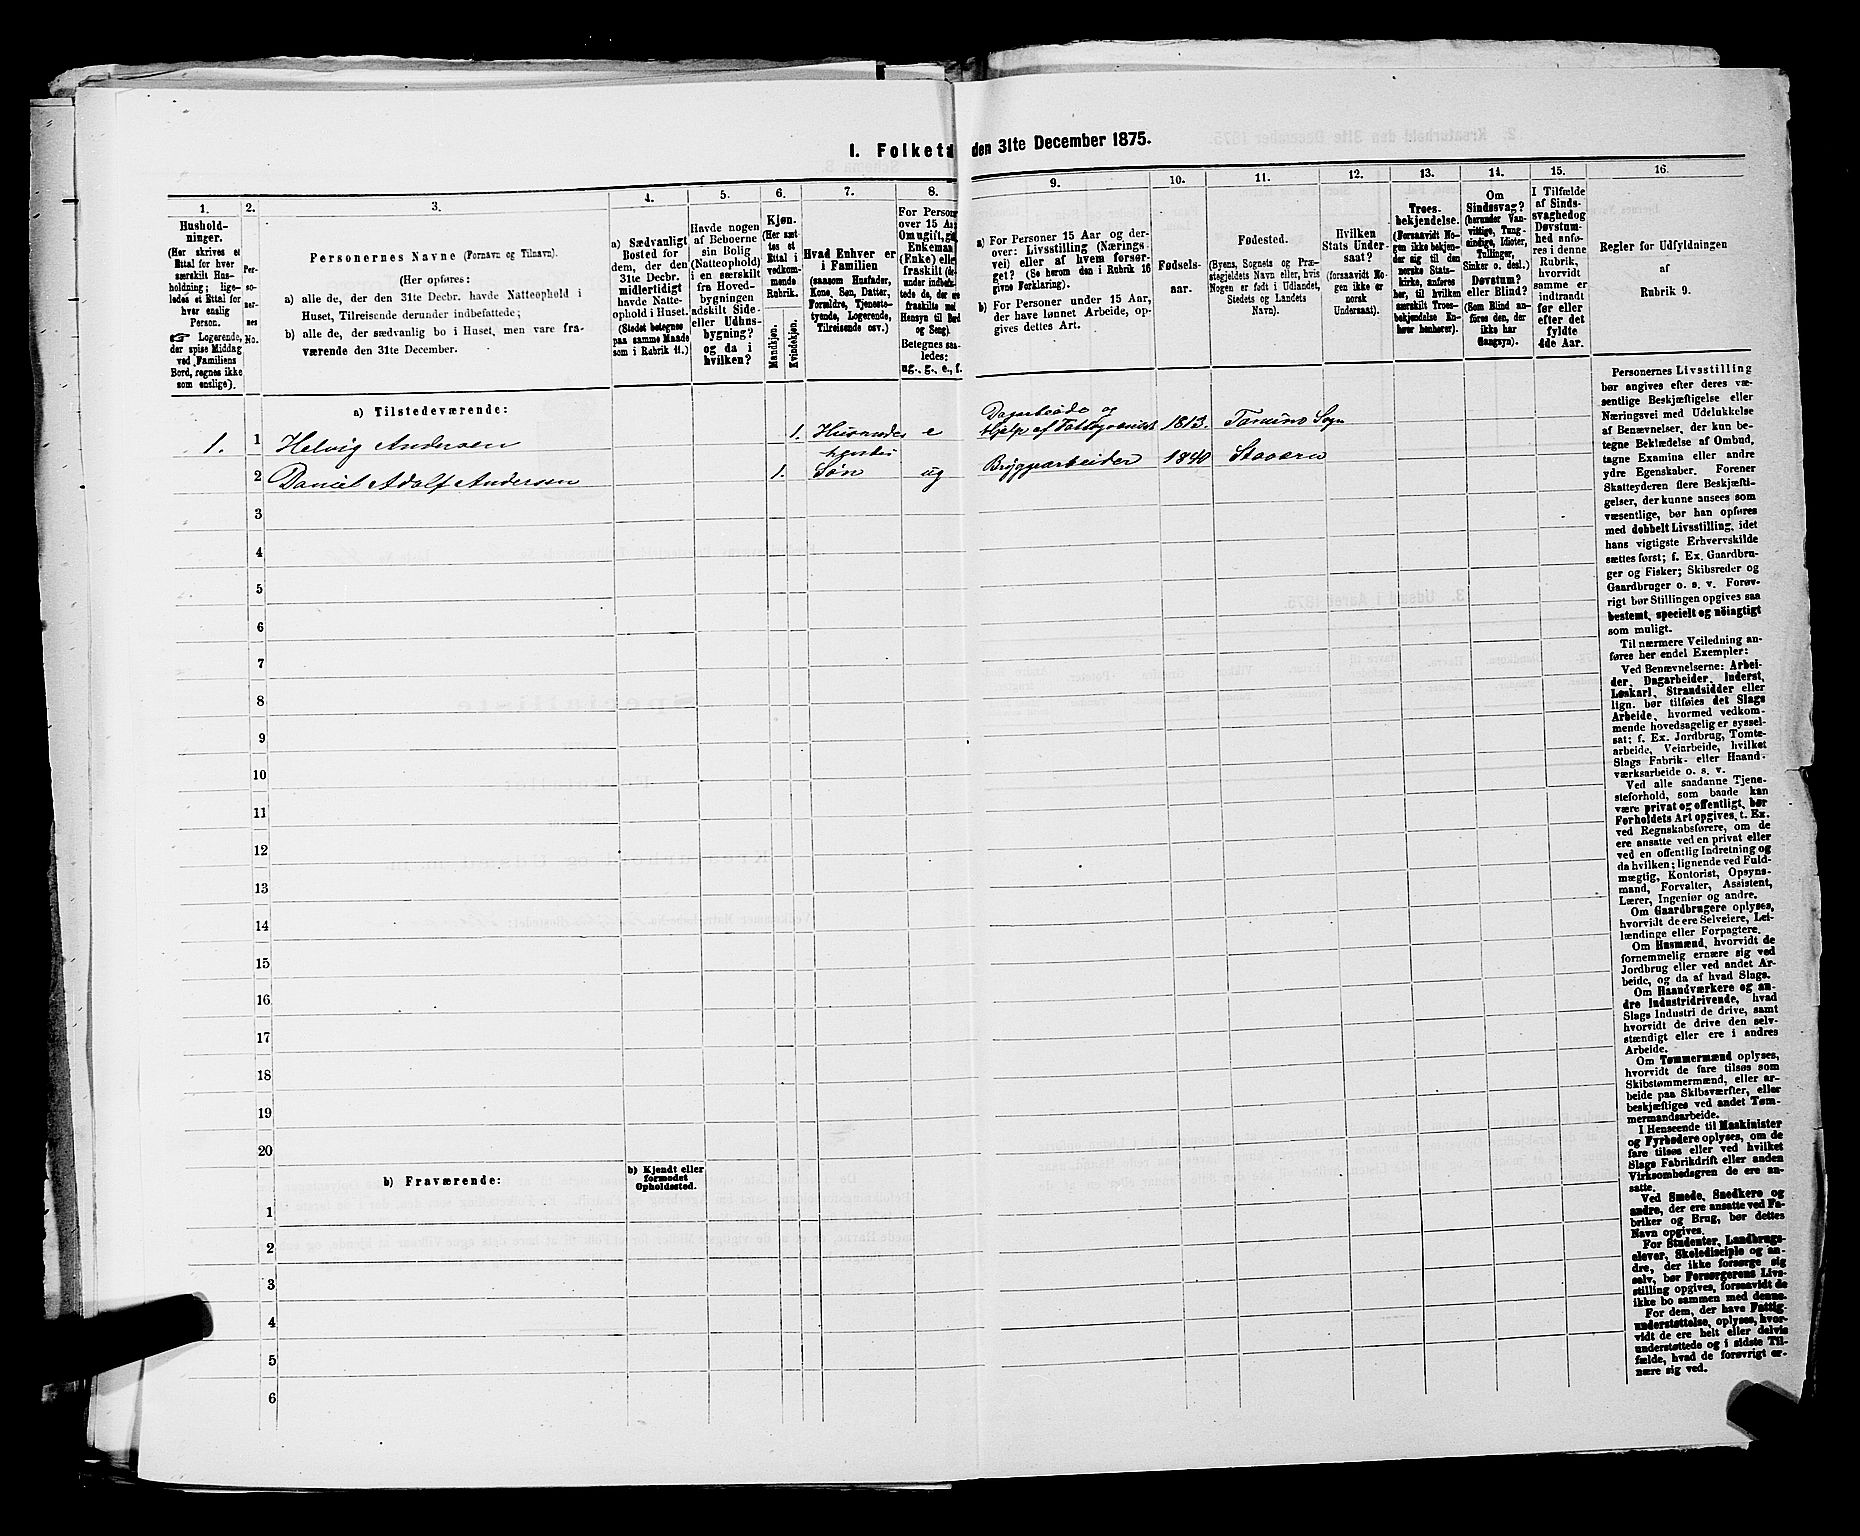 I. Folketa den 31te December 1875.
1.
Hushold-
ninger.
(Her skrives et
Ettal for hver
særskilt Hus-
holdning; lige-
ledes et Ettal for
hver enslig
Person.
☞ Logerende,
der spise Middag
ved Familiens
Bord, regnes ikke
som enslige).
2.
Per-
so-
ner-
nes
No.
3.
Personernes Navne (Fornavn og Tilnavn).
(Her opføres:
a) alle de, der den 31te Decbr. havde Natteophold i
Huset, Tilreisende derunder indbefattede;
b) alle de, der sædvanlig bo i Huset, men vare fra-
værende den 31te December.
4.
a) Sædvanligt
Bosted for
dem, der den
31te Decbr.
midlertidigt
havde Natte-
ophold i Huset.
(Stedet betegnes
paa samme Maade
som i Rubrik 11.)
5.
Havde nogen
af Beboerne
sin Bolig
(Natteophold)
i en særskilt
fra Hoved-
bygningen
adskilt Side-
eller Udhus-
bygning?
og da i
hvilken?
6.
Kjøn.
(Her sæt-
tes et
Ettal i
vedkom-
mende
Rubrik.
Mandkjøn.
Kvindekjøn.
7.
Hvad Enhver er
i Familien
(saasom Husfader,
Kone, Søn, Datter,
Forældre, Tjeneste-
tyende, Logerende,
Tilreisende osv.)
8.
For Person
over 15 Aa
Om ugift, gi
Enkeman
(Enke) elle
fraskilt (de-
under indbefat-
tede de, der ere
fraskilte med
Hensyn til Bord
og Seng).
Betegnes saa-
ledes:
ug., g., e., f.
9.
a) For Personer 15 Aar og der-
over: Livsstilling (Nærings-
vei) eller af hvem forsør-
get? (Se herom den i Rubrik 16
givne Forklaring).
b) For Personer under 15 Aar,
der have lønnet Arbeide, op-
gives dettes Art.
10.
Fødsels-
aar.
11.
Fødested.
(Byens, Sognets og Præ-
stegjeldets Navn eller, hvis
Nogen er født i Udlandet,
Stedets og Landets
Navn).
12.
Hvilken
Stats Under-
saat?
(forsaavidt No-
gen ikke er
norsk
Undersaat).
13.
Troes-
bekjendelse.
(Forsaavidt No-
gen ikke bekjen-
der sig til den
norske Stats-
kirke, anføres
her, til hvilken
særskilt Troes-
bekjendelse En-
hver henhører).
14.
Om
Sindssvag?
(herunder Van-
vittige, Tung-
sindige, Idioter,
Tullinger,
Sinker o. desl.)
Døvstum?
eller Blind?
(Som Blind an-
føres den, der
ikke har
Gangsyn).
15.
I Tilfælde
af Sinds-
svaghed og
Døvstum-
hed anfø-
res i denne
Rubrik,
hvorvidt
samme er
indtraadt
før eller
efter det
fyldte
4de Aar.
16.
Regler for Udfyldningen
af
Rubrik 9.
a) Tilstedeværende:
1. 1 Helvig Andersen 1. Husmoder e Dagarbeide og Hjelp af Fattigvæsnet 1813. Tanums Sogn
2 Daniel Adolf Andersen 1. hendes Søn ug Bryggearbeider 1840 Stavern
3
4
5
6
7
8
9
10
11
12
13
14
15
16
17
18
19
20
b) Fraværende:
b) Kjendt eller
formodet
Opholdssted.
1
2
3
4
5
6
Personernes Livsstilling
bør angives efter deres væ-
sentlige Beskjæftigelse eller
Næringsvei med Udelukkelse
af Benævnelser, der kun be-
tegne Beklædelse af Ombud,
tagne Examina eller andre
ydre Egenskaber. Forener
Skatteyderen flere Beskjæfti-
gelser, der kunne ansees som
væsentlige, bør han opføres
med dobbelt Livsstilling, idet
hans vigtigste Erhvervskilde
sættes først; f. Ex. Gaardbru-
ger og Fisker; Skibsreder og
Gaardbruger o. s. v. Forøv-
rigt bør Stillingen opgives saa
bestemt, specielt og nöiagtigt
som muligt.
Til nærmere Veiledning an-
føres her endel Exempler:
Ved Benævnelserne: Arbei-
der, Dagarbeider, Inderst,
Løskarl, Strandsidder eller
lign. bør tilføies det Slags
Arbeide, hvormed vedkom-
mende hovedsagelig er syssel-
sat; f. Ex. Jordbrug, Tomte-
arbeide, Veiarbeide, hvilket
Slags Fabrik- eller Haand-
værksarbeide o. s. v.
Ved alle saadanne Tjene-
steforhold, som baade kan
være privat og offentligt, bør
Forholdets Art opgives, t. Ex.
ved Regnskabsførere, om de
ere ansatte ved en privat eller
ved en offentlig Indretning og
da hvilken; lignende ved Fuld-
mægtig, Kontorist, Opsyns-
mand, Forvalter, Assistent,
Lærer, Ingeniør og andre.
Om Gaardbrugere oplyses,
hvorvidt de ere Selveiere, Lei-
lændinge eller Forpagtere.
Om Husmænd, hvorvidt de
fornemmelig ernære sig ved
Jordbrug eller ved andet Ar-
beide, og da af hvad Slags.
Om Haandværkere og an-
dre Industridrivende, hvad
Slags Industri de drive, samt
hvorvidt de drive den selv-
stændigt eller ere i andres
Arbeide.
Om Tømmermænd oplyses,
hvorvidt de fare tilsøs som
Skibstømmermænd, eller ar-
beide paa Skibsværfter, eller
beskjæftiges ved andet Tøm-
mermandsarbeide.
I Henseende til Maskinister
og Fyrbødere oplyses, om de
fare tilsøs eller ved hvilket
Slags Fabrikdrift eller anden
Virksombedsgren de ere an-
satte.
Ved Smede, Snedkere og
andre, der ere ansatte ved Fa-
briker og Brug, bør dettes
Navn opgives.
For Studenter, Landbrugs-
elever, Skoledisciple og an-
dre, der ikke forsørge sig
selv, bør Forsørgerens Livs-
stilling opgives, forsaavidt de
ikke bo sammen med denne.
For dem, der have Fattig-
understøttelse, oplyses, hvor-
vidt de ere helt eller delvis
understøttede og i sidste Til-
fælde, hvad de forøvrigt er-
nære sig ved.